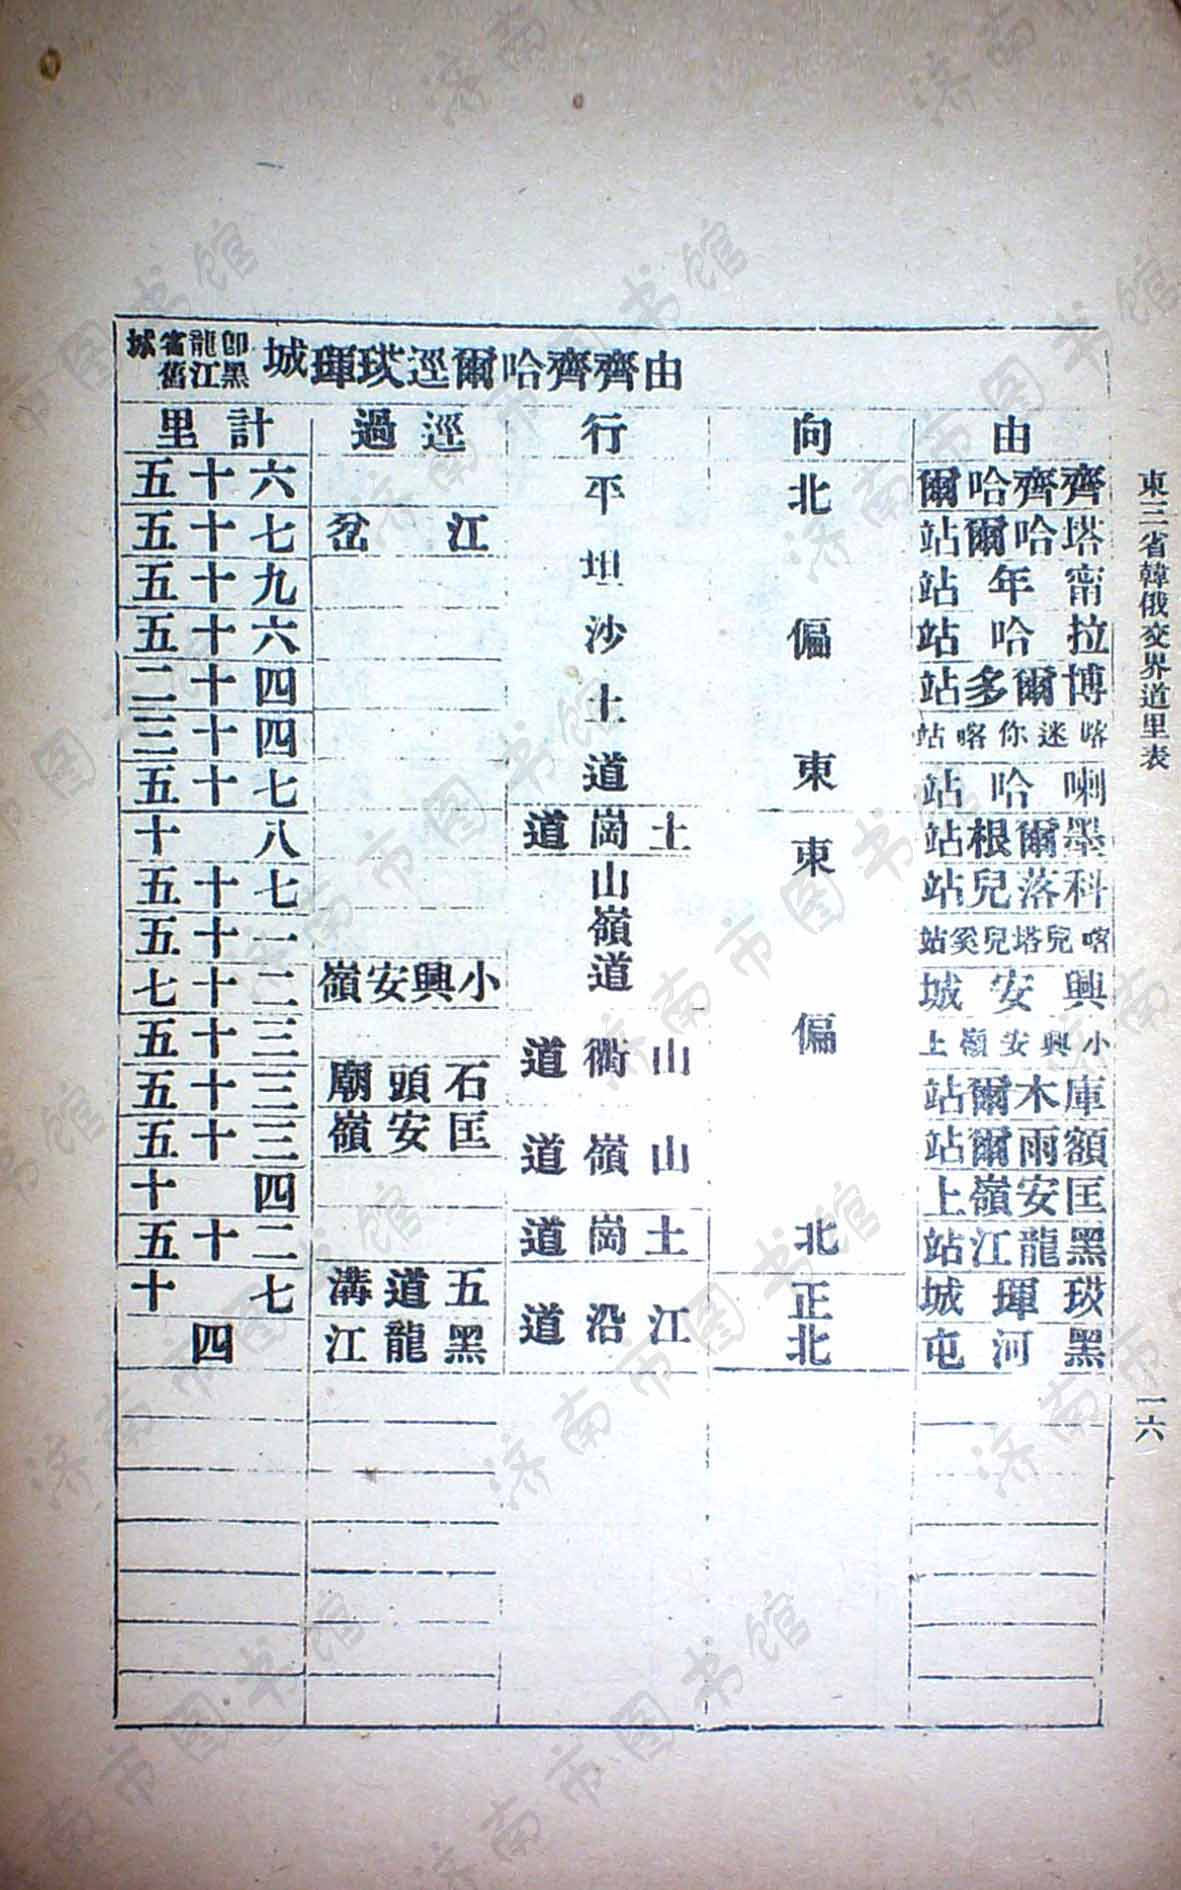 東三省韓俄交界道里表
一六
由齊齊哈爾逕瑷琿城
即黑龍江省舊城
由
齊齊哈爾
塔哈爾站
甯年站
拉哈站
博爾多站
喀迷你喀站
喇哈站
墨爾根站
科落兒站
喀兒塔兒奚站
興安城
小興安嶺上
庫木爾站
額雨爾站
匡安嶺上
黑龍江站
瑷琿城
黑河屯
向
北偏東
東偏北
正北
行
平坦沙土道
土崗道
山嶺道
山衢道
山嶺道
土崗道
江沿道
逕過
江岔
小興安嶺
石頭廟
匡安嶺
五道溝
黑龍江
計里
六十五
七十五
九十五
六十五
四十二
四十三
七十五
八十
七十五
一十五
二十七
三十五
三十五
三十五
四十
二十五
七十
四